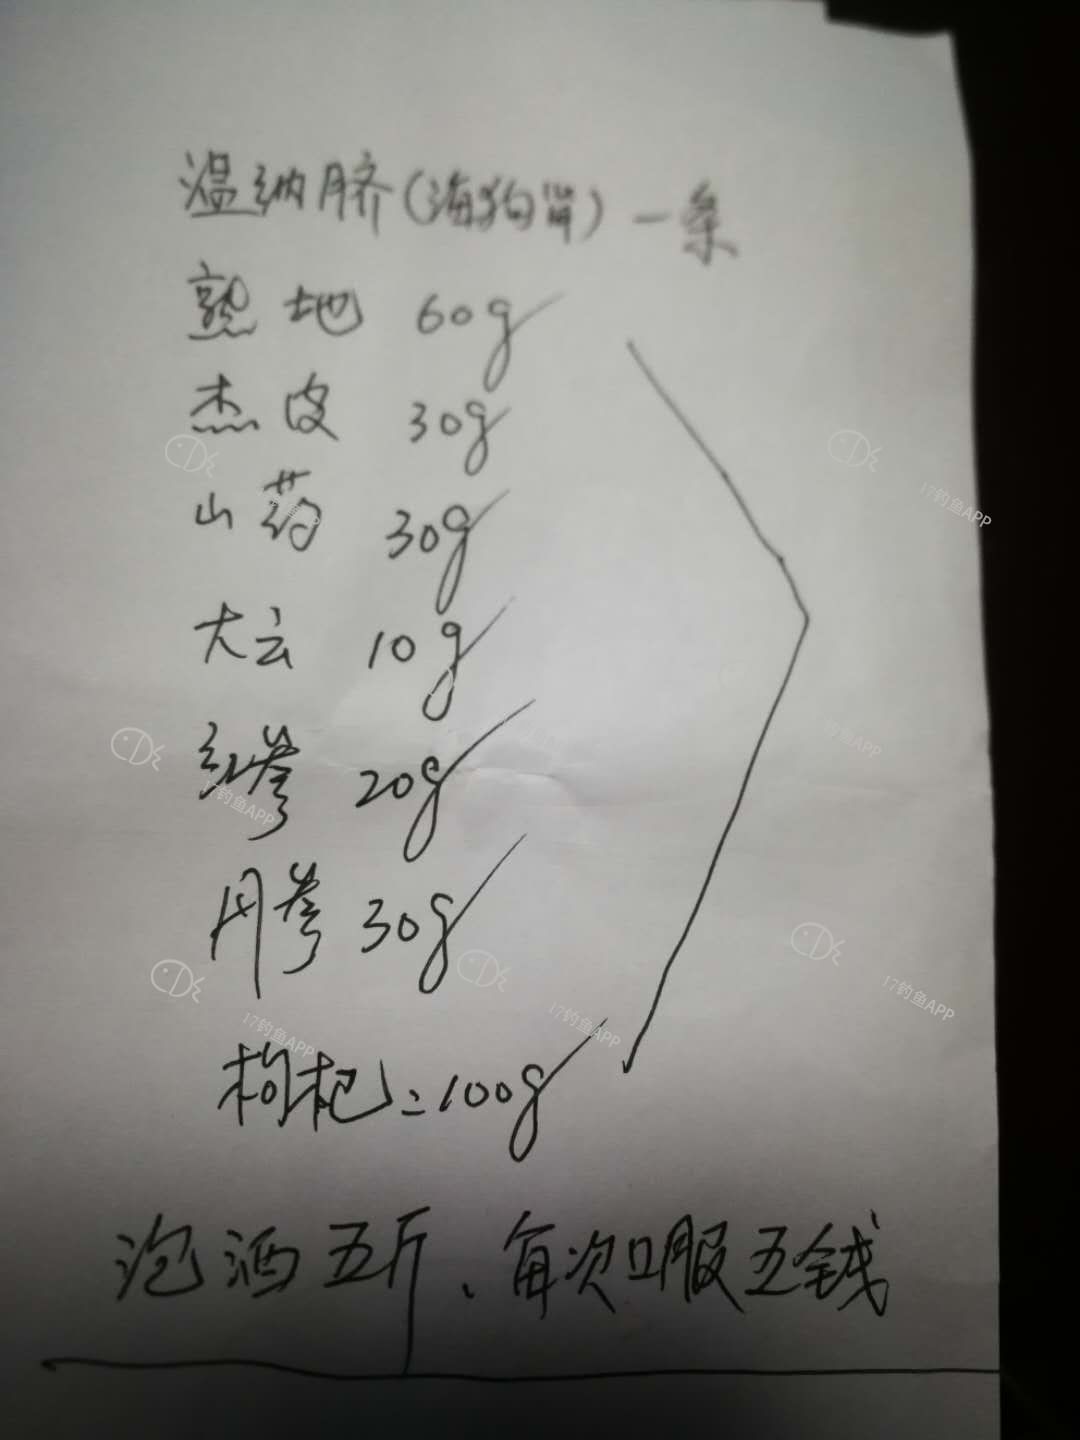 温纳脐(海狗肾)一条
熟地 60g
杰皮 30g
山药 30g
大云 10g
红参 20g
丹参 30g
枸杞=100g
泡酒五斤、每次口服五钱
17钓鱼APP
17钓鱼APP
17钓鱼APP
17钓鱼APP
17钓鱼APP
17钓鱼APP
17钓鱼APP